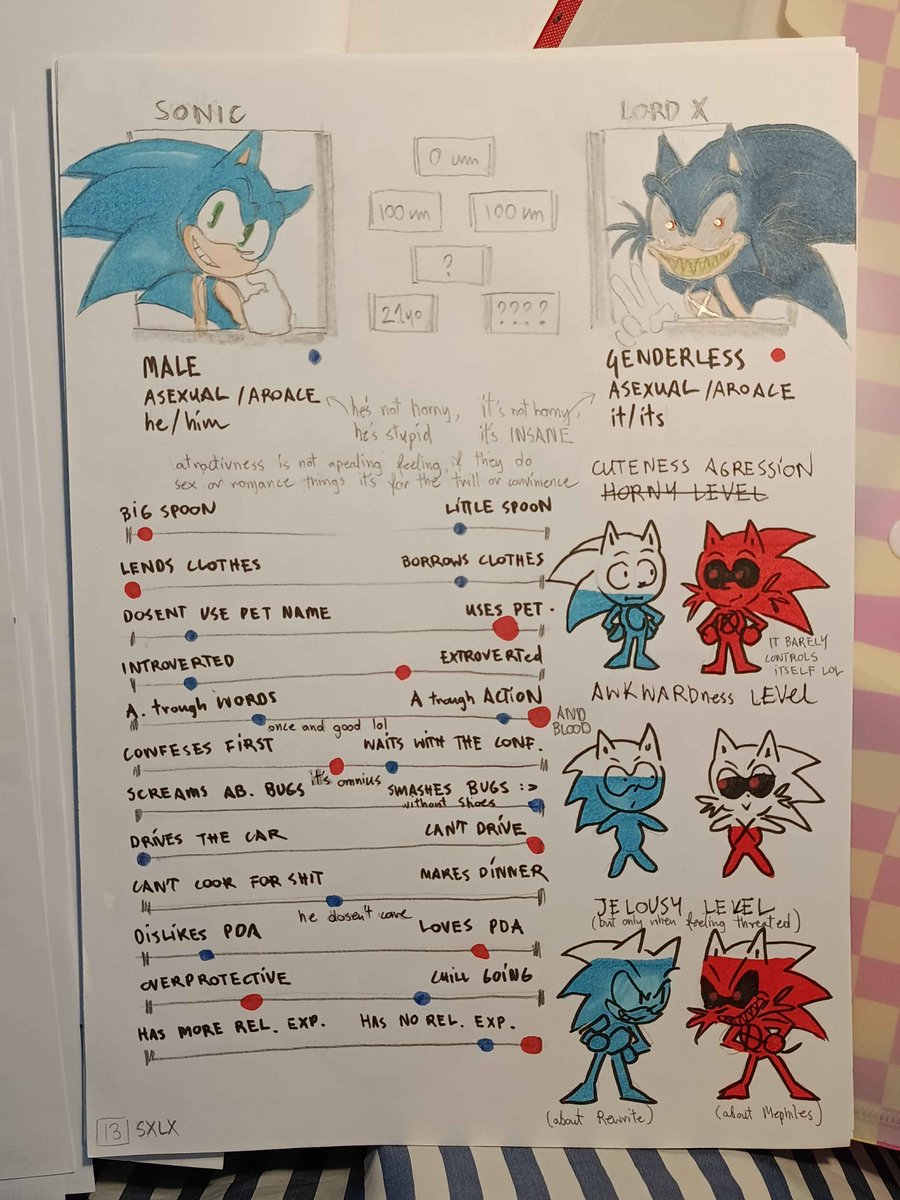 SONIC
LORD X
0 cm
100 cm
100 cm
?
21yo
????
MALE
ASEXUAL /AROACE
he/him
GENDERLESS
ASEXUAL /AROACE
it/its
he's not horny,
he's stupid
it's not horny,
it's INSANE
atractivness is not apealing feeling, if they do
sex or romance things it's for the trill or convinience
BIG SPOON
LITTLE SPOON
LENDS CLOTHES
BORROWS CLOTHES
DOSENT USE PET NAME
USES PET.
INTROVERTED
EXTROVERTED
A. trough WORDS
A trough ACTION
once and good lol
AND
BLOOD
CONFESES FIRST
WAITS WITH THE CONF.
SCREAMS AB. BUGS
it's omnius
SMASHES BUGS :>
without shoes
DRIVES THE CAR
CAN'T DRIVE
CAN'T COOK FOR SHIT
MAKES DINNER
he dosen't care
DISLIKES PDA
LOVES PDA
OVERPROTECTIVE
CHILL GOING
HAS MORE REL. EXP.
HAS NO REL. EXP.
CUTENESS AGRESSION
HORNY LEVEL
IT BARELY
CONTROLS
ITSELF LOL
AWKWARDness LEVEl
JELOUSY LEVEL
(but only when feeling threated)
(about Rewrite)
(about Mephiles)
13 SXLX